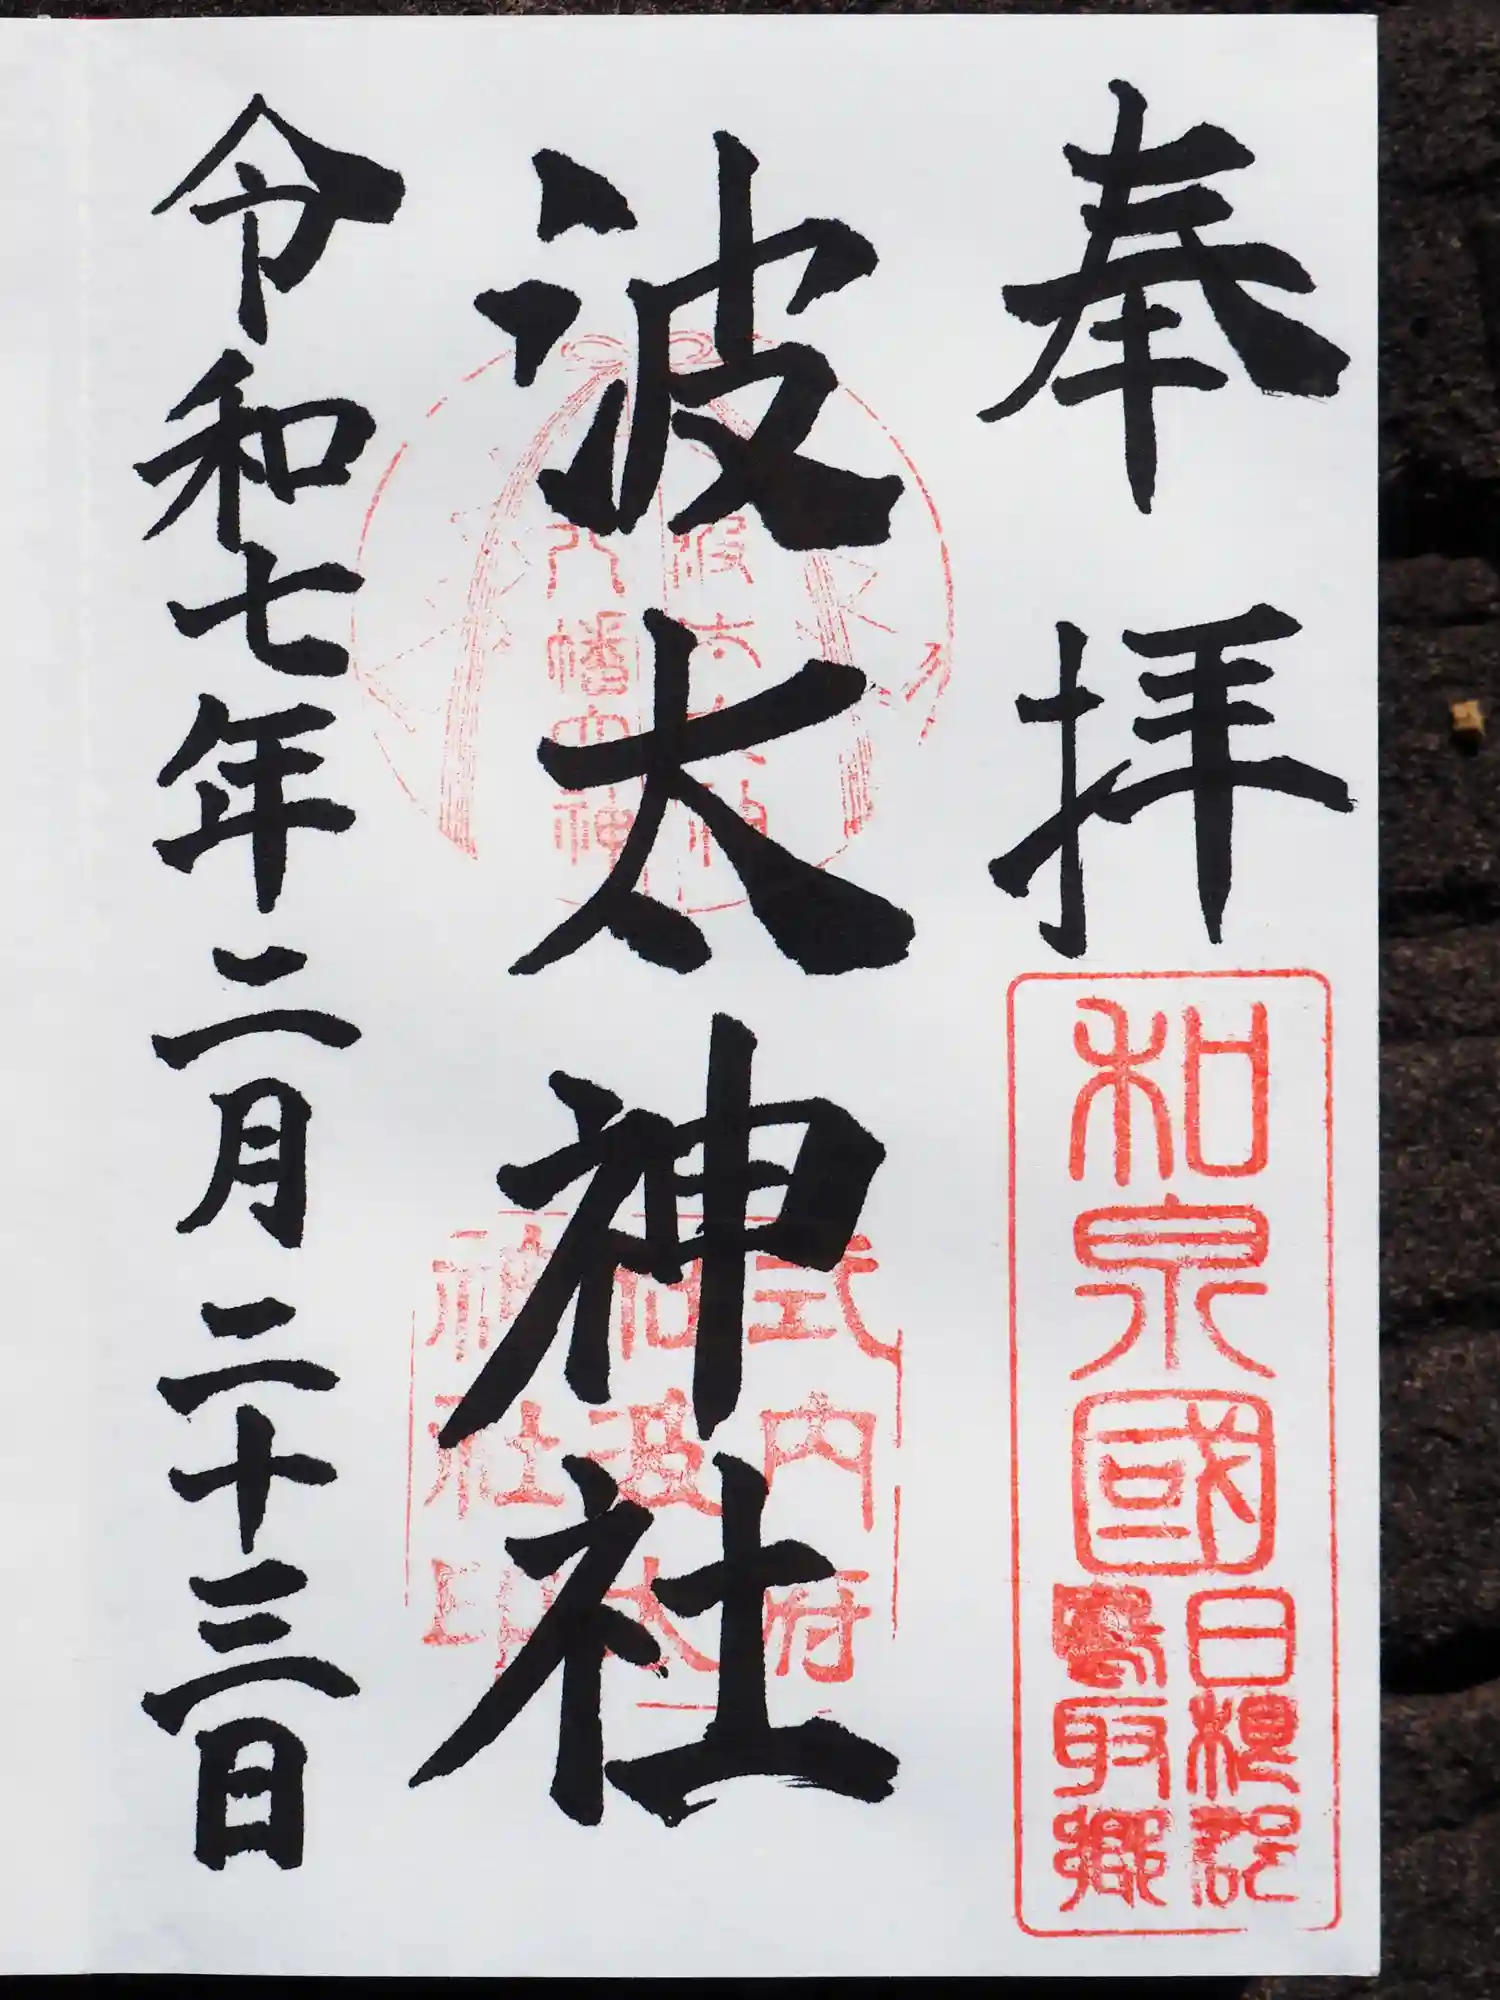 奉拝
和泉國
日根郡
鳥取郷
波太神社
八幡大神
式内府
社波太
神社印
令和七年二月二十三日